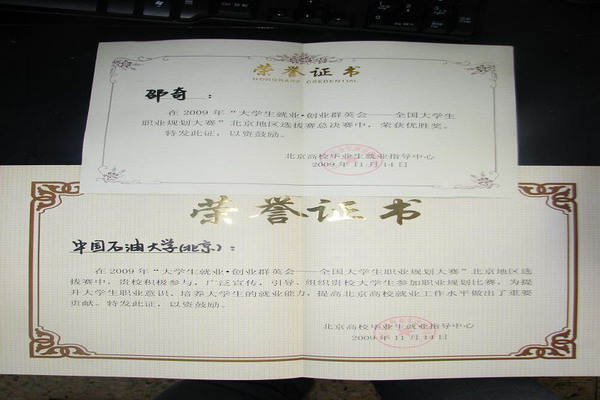 荣誉证书
HONORARY CREDENTIAL
邵奇：
在2009年“大学生就业·创业群英会——全国大学生
职业规划大赛”北京地区选拔赛总决赛中，荣获优胜奖。
特发此证，以资鼓励。
北京高校毕业生就业指导中心
2009年11月14日
荣誉证书
中国石油大学(北京)：
在2009年“大学生就业·创业群英会——全国大学生职业规划大赛”北京地区选
拔赛中，贵校积极参与，广泛宣传，引导、组织贵校大学生参加职业规划比赛，为提
升大学生职业意识、培养大学生的就业能力，提高北京高校就业工作水平做出了重要
贡献。特发此证，以资鼓励。
北京高校毕业生就业指导中心
2009年11月14日